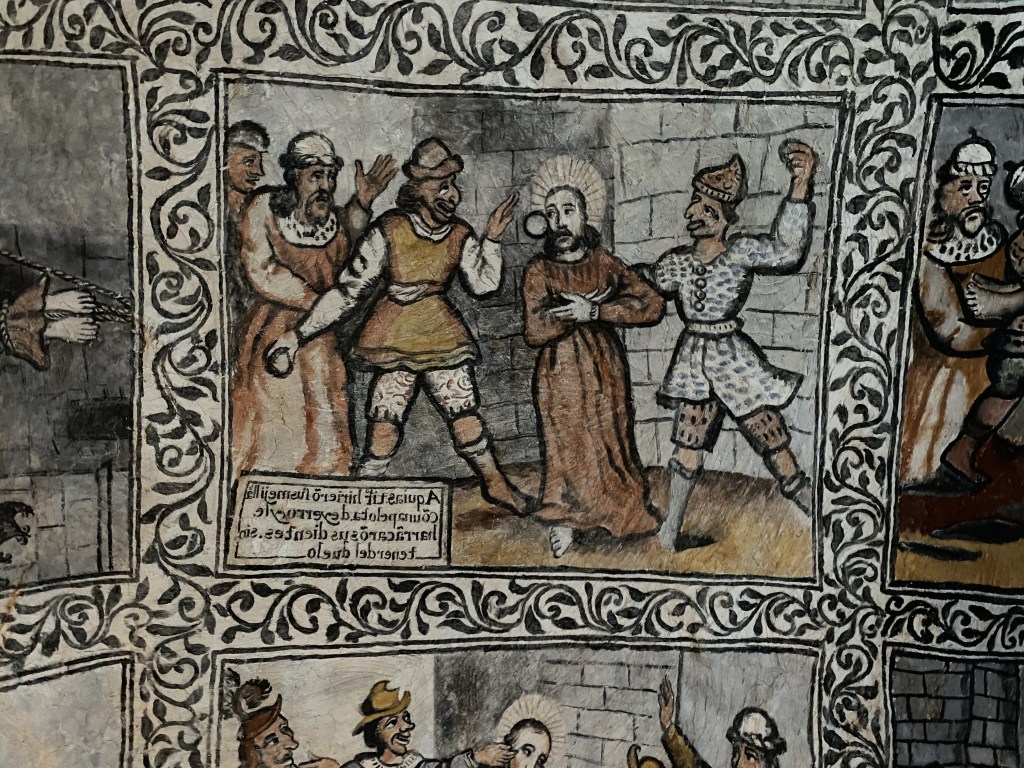 Aquias hirierõ sumejillã
cõ una pelota de yerro yle
harrãcarõ sus dientes. sin
tener del duelo